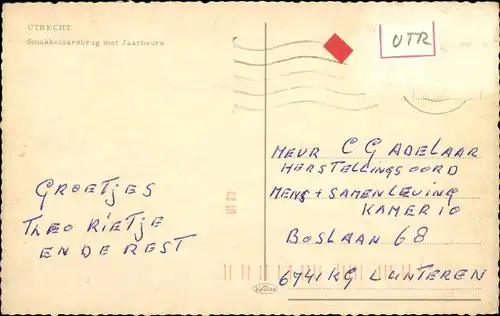 UTRECHT
Smakkelaarsbrug met Jaarbeurs
UTR
MEVR C G ADELAAR
HERSTELLINGSOORD
MENS + SAMENLEVING
KAMER 10
BOSLAAN 68
6741 KG LUNTEREN
GROETJES
THEO RIETJE
EN DE REST
UT 25